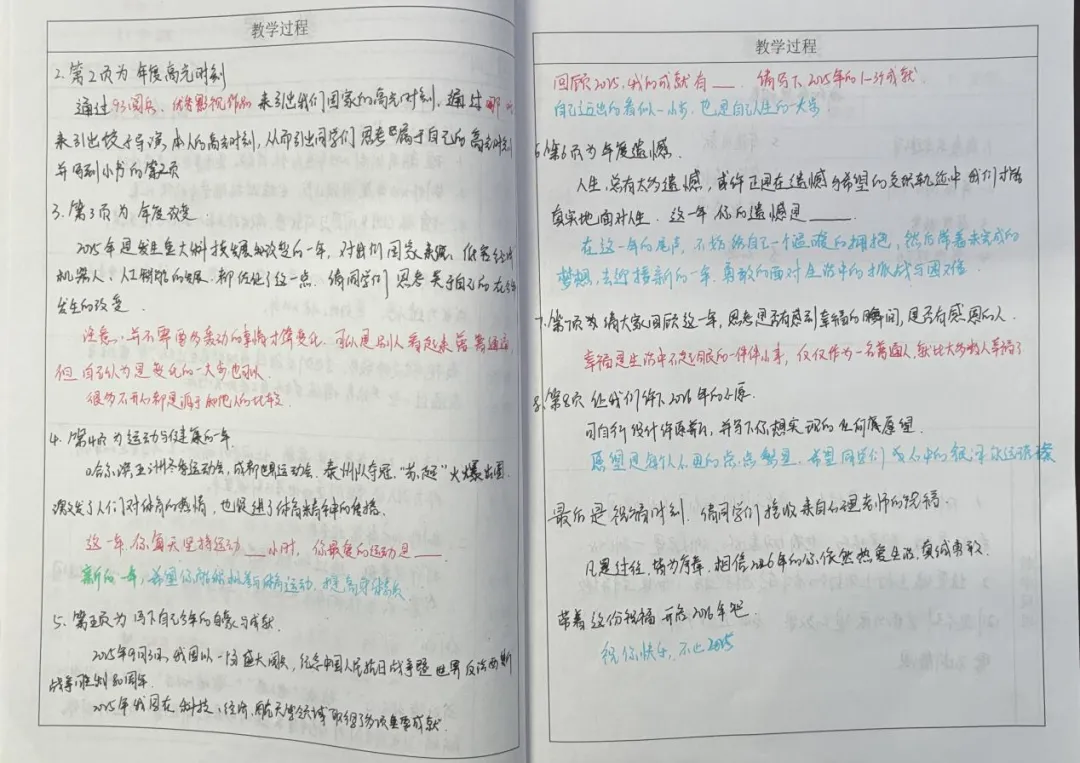 教学过程
2. 第2页为 年度高光时刻
通过93阅兵、优秀影视作品 来引出我们国家的高光时刻，通过哪吒
来引出饺子导演本人的高光时刻，从而引出同学们思考属于自己的高光时刻
并写到小书的第2页
3. 第3页为 年度改变
2025年是发生重大科技发展和改变的一年，对我们国家来说，
机器人、人工智能的发展，都佐证了这一点. 请同学们思考关于自己的在今年
发生的改变.
注意：并不需要多轰动的事情才算变化. 可以是别人看起来普普通通，
但自己认为是变化的一大步也可以
很多不开心都是源于和他人的比较.
4. 第4页为运动与健康的一年
哈尔滨亚洲冬季运动会，成都世界运动会，泰州队夺冠，“苏超”火爆出圈，
激发了人们对体育的热情，也促进了体育精神的传播.
这一年，你每天坚持运动 ___ 小时， 你最爱的运动是 ___
新的一年，希望你能积极参与体育运动，提高身体素质.
5. 第五页为 写下自己今年的自豪与成就.
2025年9月3日，我国以一场盛大阅兵，纪念中国人民抗日战争暨世界反法西斯
战争胜利80周年.
2025年我国在科技、经济、航天等领域取得了多项重要成就.
教学过程
回顾2025，我的成就有 ___. 请写下2025年的1-3个成就.
自己迈出的看似一小步，也是自己人生的一大步
6. 第6页为年度遗憾.
人生，总有太多遗憾，或许正因在遗憾与希望的交织轨迹中 我们才能
真实地面对人生. 这一年 你的遗憾是 ___.
在这一年的尾声，不妨给自己一个温暖的拥抱，然后带着未完成的
梦想，去迎接新的一年. 勇敢的面对生活中的挑战与困难.
7. 第7页为 请大家回顾这一年，思考是否有感到幸福的瞬间，是否有感恩的人.
幸福是生活中不起眼的一件件小事，仅仅作为一名普通人，就比大多数人幸福了
8. 第8页 让我们许下2026年的心愿.
可自行设计许愿养片，并写下你想实现的任何愿望
愿望是每个人心里的点点繁星，希望同学们
最后是祝福时刻. 请同学们接收来自心理老师的祝福.
凡是过往，皆为序章. 相信2026年的你，依然热爱生活，真诚勇敢.
带着这份祝福 开启2026年吧.
祝你快乐，不止2025